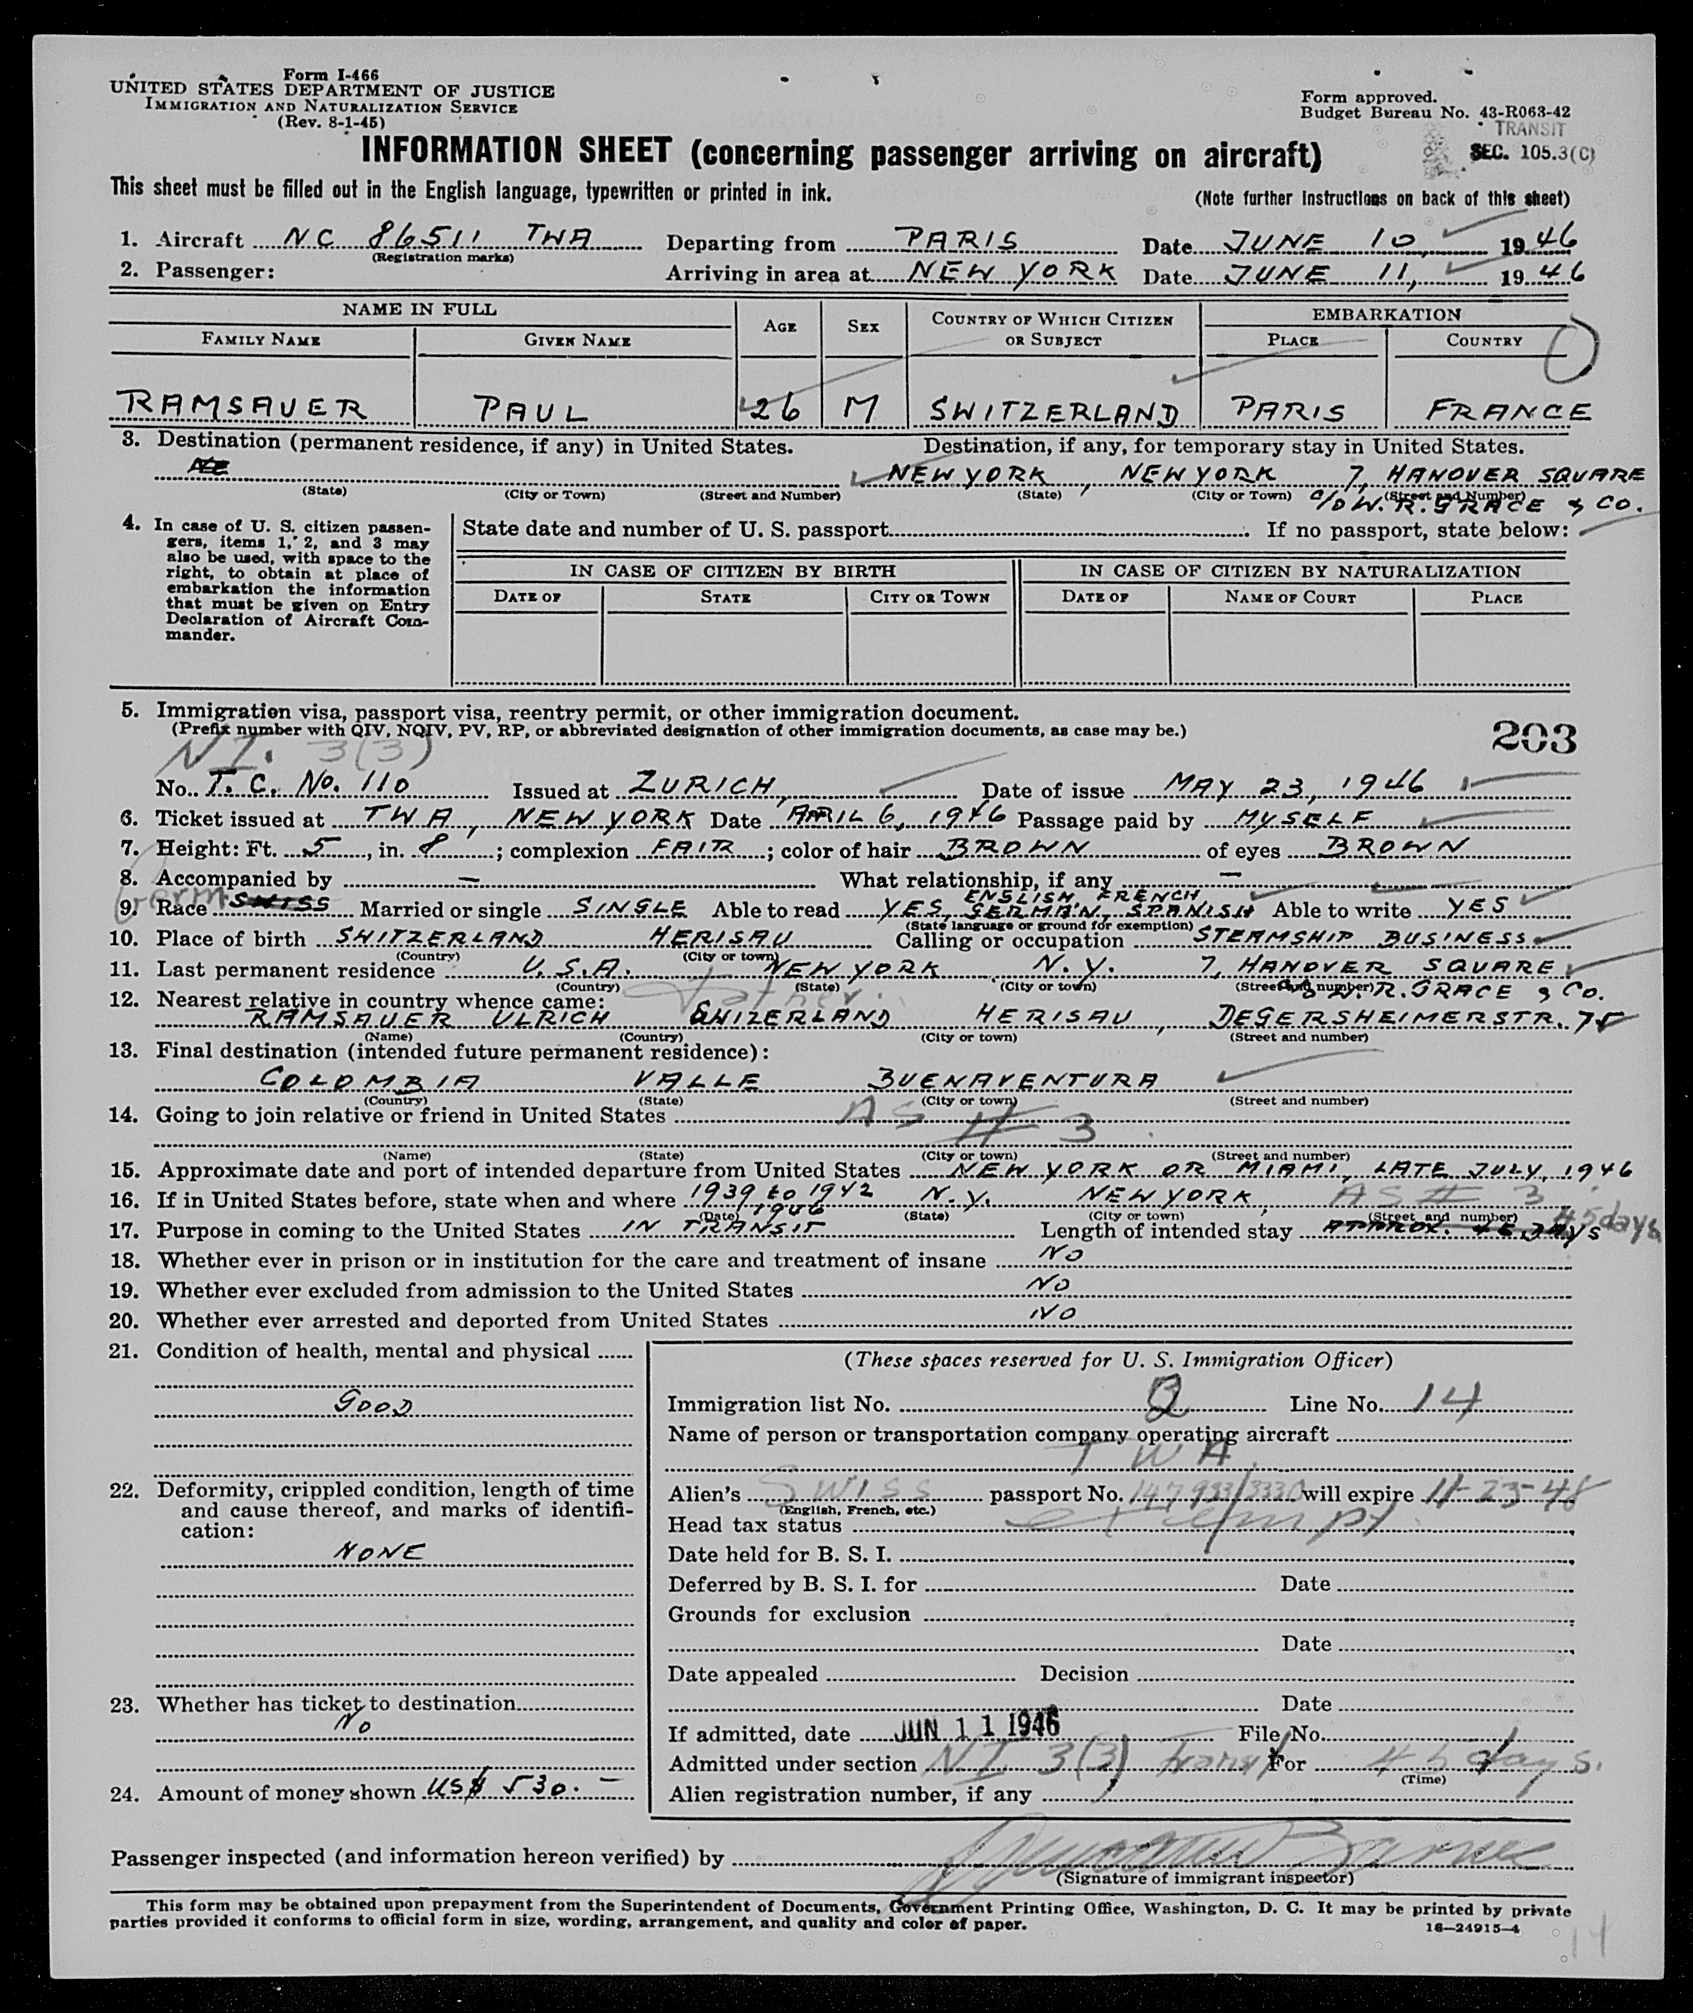 Form I-466
UNITED STATES DEPARTMENT OF JUSTICE
IMMIGRATION AND NATURALIZATION SERVICE
(Rev. 8-1-45)
Form approved.
Budget Bureau No. 43-R063-42
TRANSIT
SEC. 105.3(C)
INFORMATION SHEET (concerning passenger arriving on aircraft)
This sheet must be filled out in the English language, typewritten or printed in ink.
(Note further instructions on back of this sheet)
1. Aircraft NC 86511 TWA Departing from PARIS Date JUNE 10, 1946
(Registration marks)
2. Passenger: Arriving in area at NEW YORK Date JUNE 11, 1946
NAME IN FULL AGE SEX COUNTRY OF WHICH CITIZEN OR SUBJECT EMBARKATION
FAMILY NAME GIVEN NAME PLACE COUNTRY
RAMSAUER PAUL 26 M SWITZERLAND PARIS FRANCE
3. Destination (permanent residence, if any) in United States. Destination, if any, for temporary stay in United States.
NEW YORK, NEW YORK 7, HANOVER SQUARE
(State) (City or Town) (Street and Number) (State) (City or Town) (Street and Number)
c/o W.R. GRACE & CO.
4. In case of U. S. citizen passengers, items 1, 2, and 3 may also be used, with space to the right, to obtain at place of embarkation the information that must be given on Entry Declaration of Aircraft Commander.
State date and number of U. S. passport If no passport, state below:
IN CASE OF CITIZEN BY BIRTH IN CASE OF CITIZEN BY NATURALIZATION
DATE OF STATE CITY OR TOWN DATE OF NAME OF COURT PLACE
5. Immigration visa, passport visa, reentry permit, or other immigration document.
(Prefix number with QIV, NQIV, PV, RP, or abbreviated designation of other immigration documents, as case may be.)
203
NI. 3(3)
No. T. C. No. 110 Issued at ZURICH, Date of issue MAY 23, 1946
6. Ticket issued at TWA, NEW YORK Date APRIL 6, 1946 Passage paid by MYSELF
7. Height: Ft. 5, in. 8; complexion FAIR; color of hair BROWN of eyes BROWN
8. Accompanied by — What relationship, if any —
ENGLISH, FRENCH
9. Race SWISS Married or single SINGLE Able to read YES, GERMAN, SPANISH Able to write YES
Germ
(State language or ground for exemption)
10. Place of birth SWITZERLAND HERISAU Calling or occupation STEAMSHIP BUSINESS
(Country) (City or town)
11. Last permanent residence U.S.A. NEW YORK N.Y. 7, HANOVER SQUARE
(Country) (State) (City or town) (Street and number)
W.R. GRACE & Co.
12. Nearest relative in country whence came: father
RAMSAUER ULRICH SWIZERLAND HERISAU, DEGERSHEIMERSTR. 75
(Name) (Country) (City or town) (Street and number)
13. Final destination (intended future permanent residence):
COLOMBIA VALLE BUENAVENTURA
(Country) (State) (City or town) (Street and number)
14. Going to join relative or friend in United States AS # 3
(Name) (State) (City or town) (Street and number)
15. Approximate date and port of intended departure from United States NEW YORK OR MIAMI, LATE JULY, 1946
16. If in United States before, state when and where 1939 to 1942 N.Y. NEW YORK, AS # 3
1946
(Date) (State) (City or town) (Street and number)
17. Purpose in coming to the United States IN TRANSIT Length of intended stay APPROX. 45 days
18. Whether ever in prison or in institution for the care and treatment of insane NO
19. Whether ever excluded from admission to the United States NO
20. Whether ever arrested and deported from United States NO
21. Condition of health, mental and physical
GOOD
22. Deformity, crippled condition, length of time and cause thereof, and marks of identification:
NONE
23. Whether has ticket to destination
NO
24. Amount of money shown US$ 530.—
(These spaces reserved for U. S. Immigration Officer)
Immigration list No. Line No. 14
Name of person or transportation company operating aircraft
TWA
Alien's SWISS passport No. 147933/3330 will expire 11-23-48
(English, French, etc.)
Head tax status exempt
Date held for B. S. I.
Deferred by B. S. I. for Date
Grounds for exclusion
Date
Date appealed Decision
Date
If admitted, date JUN 11 1946 File No.
Admitted under section NI 3(3) Transit For 45 days.
(Time)
Alien registration number, if any
Passenger inspected (and information hereon verified) by
(Signature of immigrant inspector)
This form may be obtained upon prepayment from the Superintendent of Documents, Government Printing Office, Washington, D. C. It may be printed by private
parties provided it conforms to official form in size, wording, arrangement, and quality and color of paper.
16—24915-4
14